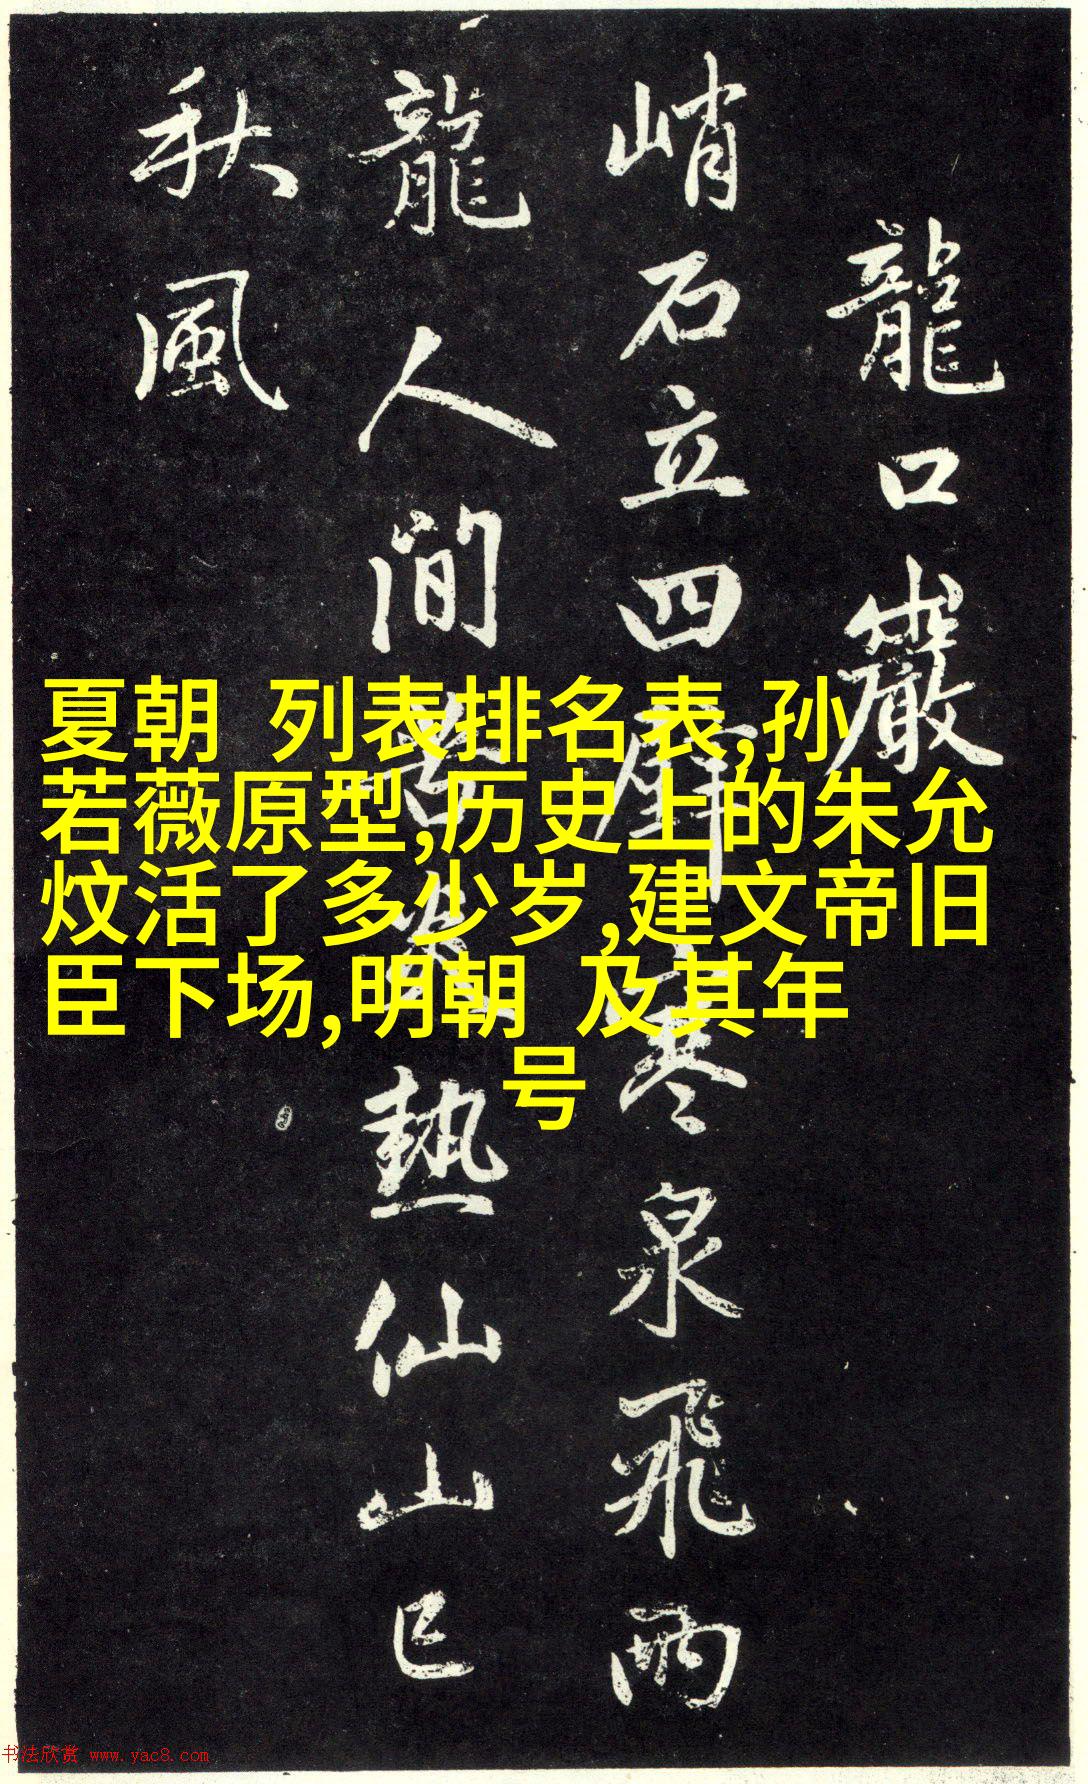 龍口巖
峭石立四壁寒泉飛雨
龍人間苦炎熱仙山已
秋風
夏朝 列表排名表,孙
若薇原型,历史上的朱允
炆活了多少岁,建文帝旧
臣下场,明朝 及其年
号
书法欣赏 www.yac8.com